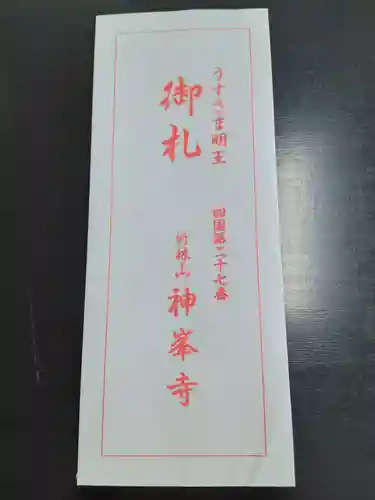 うすさま明王
四国第二十七番
御札
竹林山
神峯寺